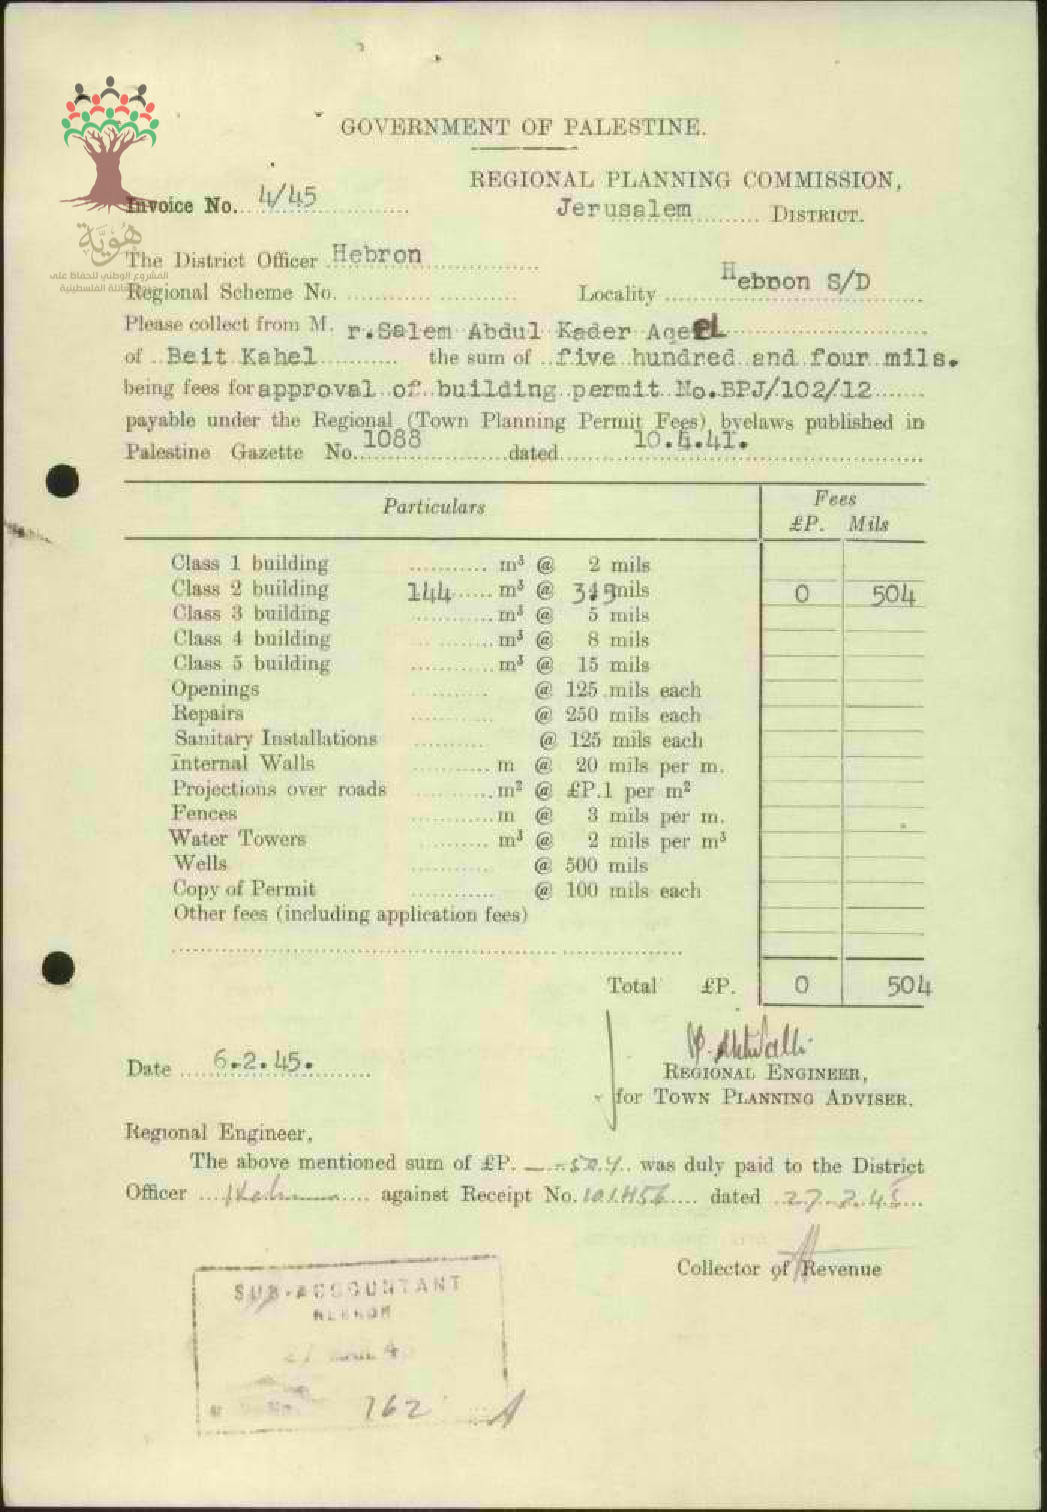 GOVERNMENT OF PALESTINE.
REGIONAL PLANNING COMMISSION,
Invoice No. 4/45
Jerusalem DISTRICT.
هُوِيَّة
المشروع الوطني للحفاظ على
العائلة الفلسطينية
The District Officer Hebron
Regional Scheme No. Locality Hebron S/D
Please collect from M. r.Salem Abdul Kader Aqel
of Beit Kahel the sum of five hundred and four mils.
being fees for approval of building permit No.BPJ/102/12
payable under the Regional (Town Planning Permit Fees) byelaws published in
Palestine Gazette No. 1088 dated 10.4.41.
Particulars Fees
£P. Mils
Class 1 building m³ @ 2 mils
Class 2 building 144 m³ @ mils 0 504
Class 3 building m³ @ 5 mils
Class 4 building m³ @ 8 mils
Class 5 building m³ @ 15 mils
Openings @ 125 mils each
Repairs @ 250 mils each
Sanitary Installations @ 125 mils each
Internal Walls m @ 20 mils per m.
Projections over roads m² @ £P.1 per m²
Fences m @ 3 mils per m.
Water Towers m³ @ 2 mils per m³
Wells @ 500 mils
Copy of Permit @ 100 mils each
Other fees (including application fees)
Total £P. 0 504
Date 6.2.45.
REGIONAL ENGINEER,
for TOWN PLANNING ADVISER.
Regional Engineer,
The above mentioned sum of £P. -.504 was duly paid to the District
Officer against Receipt No. 101456 dated 27.2.45
Collector of Revenue
SUB-ACCOUNTANT
HEBRON
762